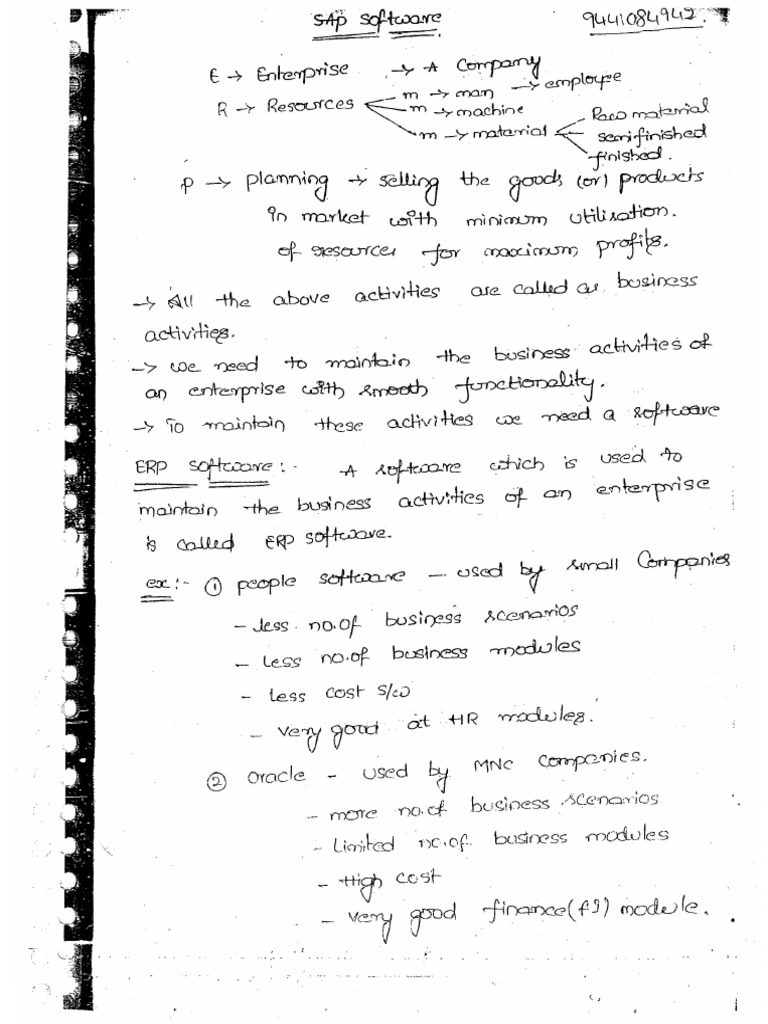 SAP Software 9441084942.
E → Enterprise → A Company
R → Resources m → man → employee
m → machine Raw material
m → material semifinished
finished.
P → planning → selling the goods (or) products
in market with minimum utilisation.
of resources for maximum profits.
→ All the above activities are called as business
activities.
→ we need to maintain the business activities of
an enterprise with smooth functionality.
→ To maintain these activities we need a software
ERP software:- A software which is used to
maintain the business activities of an enterprise
is called ERP software.
ex:- ① people software - used by small Companies
- less no.of business scenarios
- Less no.of business modules
- Less cost s/w
- very good at HR modules.
② Oracle - used by MNC companies.
- more no.of business scenarios
- Limited no.of business modules
- High cost
- very good finance(fI) module.